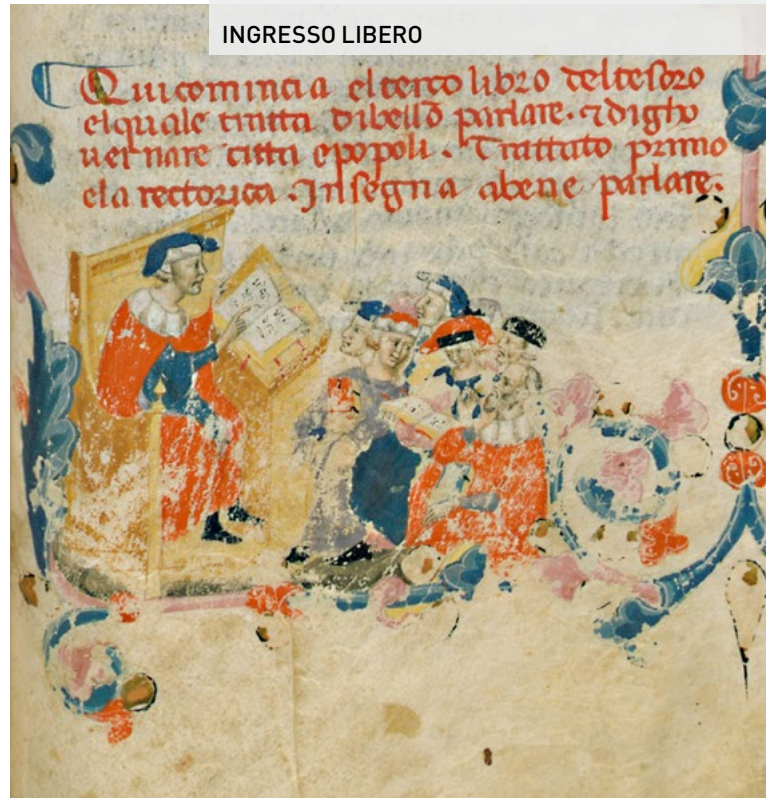 INGRESSO LIBERO
Qui comincia el terço libro del tesoro
el quale tratta di bello parlare. ⁊ di gho
uernare citta e popoli. Trattato primo
e la rectorica. Insegna a bene parlare.